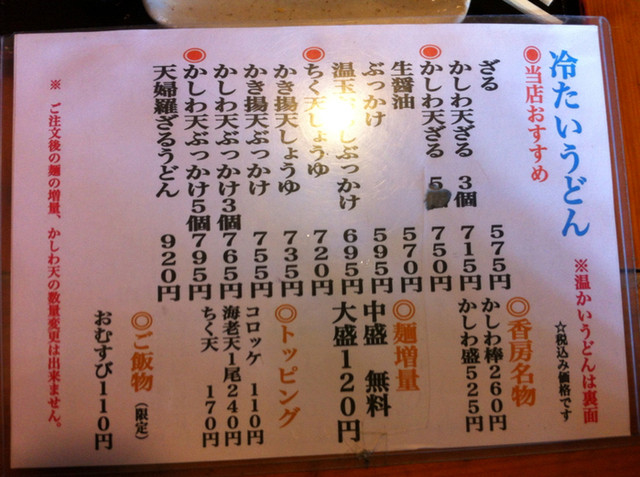 冷たいうどん
※温かいうどんは裏面
☆税込み価格です
◎当店おすすめ
ざる 575円
かしわ天ざる 3個 715円
◎かしわ天ざる 5 750円
生醤油 570円
ぶっかけ 595円
温玉 しぶっかけ 695円
◎ちく天しょうゆ 720円
かき揚天しょうゆ 735円
かき揚天ぶっかけ 755円
かしわ天ぶっかけ3個 765円
◎かしわ天ぶっかけ5個 795円
天婦羅ざるうどん 920円
◎香房名物
かしわ棒260円
かしわ盛525円
◎麺増量
中盛 無料
大盛120円
◎トッピング
コロッケ 110円
海老天1尾240円
ちく天 170円
◎ご飯物(限定)
おむすび110円
※ ご注文後の麺の増量、かしわ天の数量変更は出来ません。